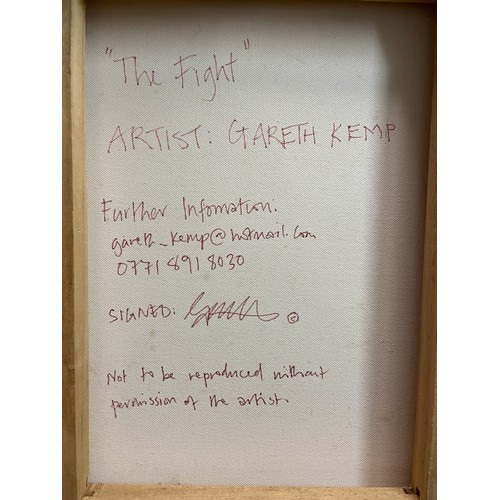 "The Fight"
ARTIST: GARETH KEMP
Further Information:
gareth_kemp@hotmail.com
0771 891 8030
SIGNED: ©
Not to be reproduced without
permission of the artist.